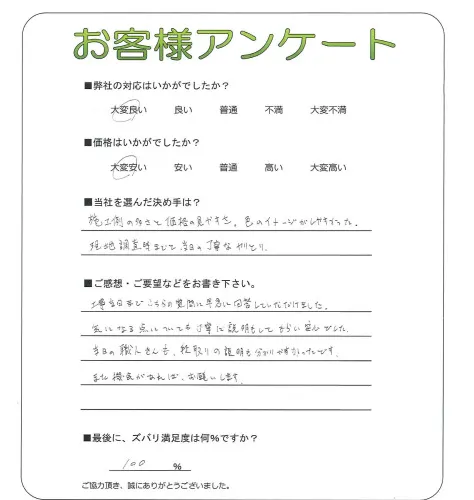 お客様アンケート
■弊社の対応はいかがでしたか？
大変良い 良い 普通 不満 大変不満
■価格はいかがでしたか？
大変安い 安い 普通 高い 大変高い
■当社を選んだ決め手は？
施工例の多さと価格の見やすさ、色のイメージがしやすかった。
現地調査時まで 当日の丁寧なやりとり。
■ご感想・ご要望などをお書き下さい。
工事当日まで こちらの質問に早急に回答していただけました。
気になる点についても丁寧に説明もしてもらい安心でした。
当日の職人さんも、 段取りの説明も分かりやすかったです。
また機会があれば、お願いします。
■最後に、ズバリ満足度は何%ですか？
100 %
ご協力頂き、誠にありがとうございました。